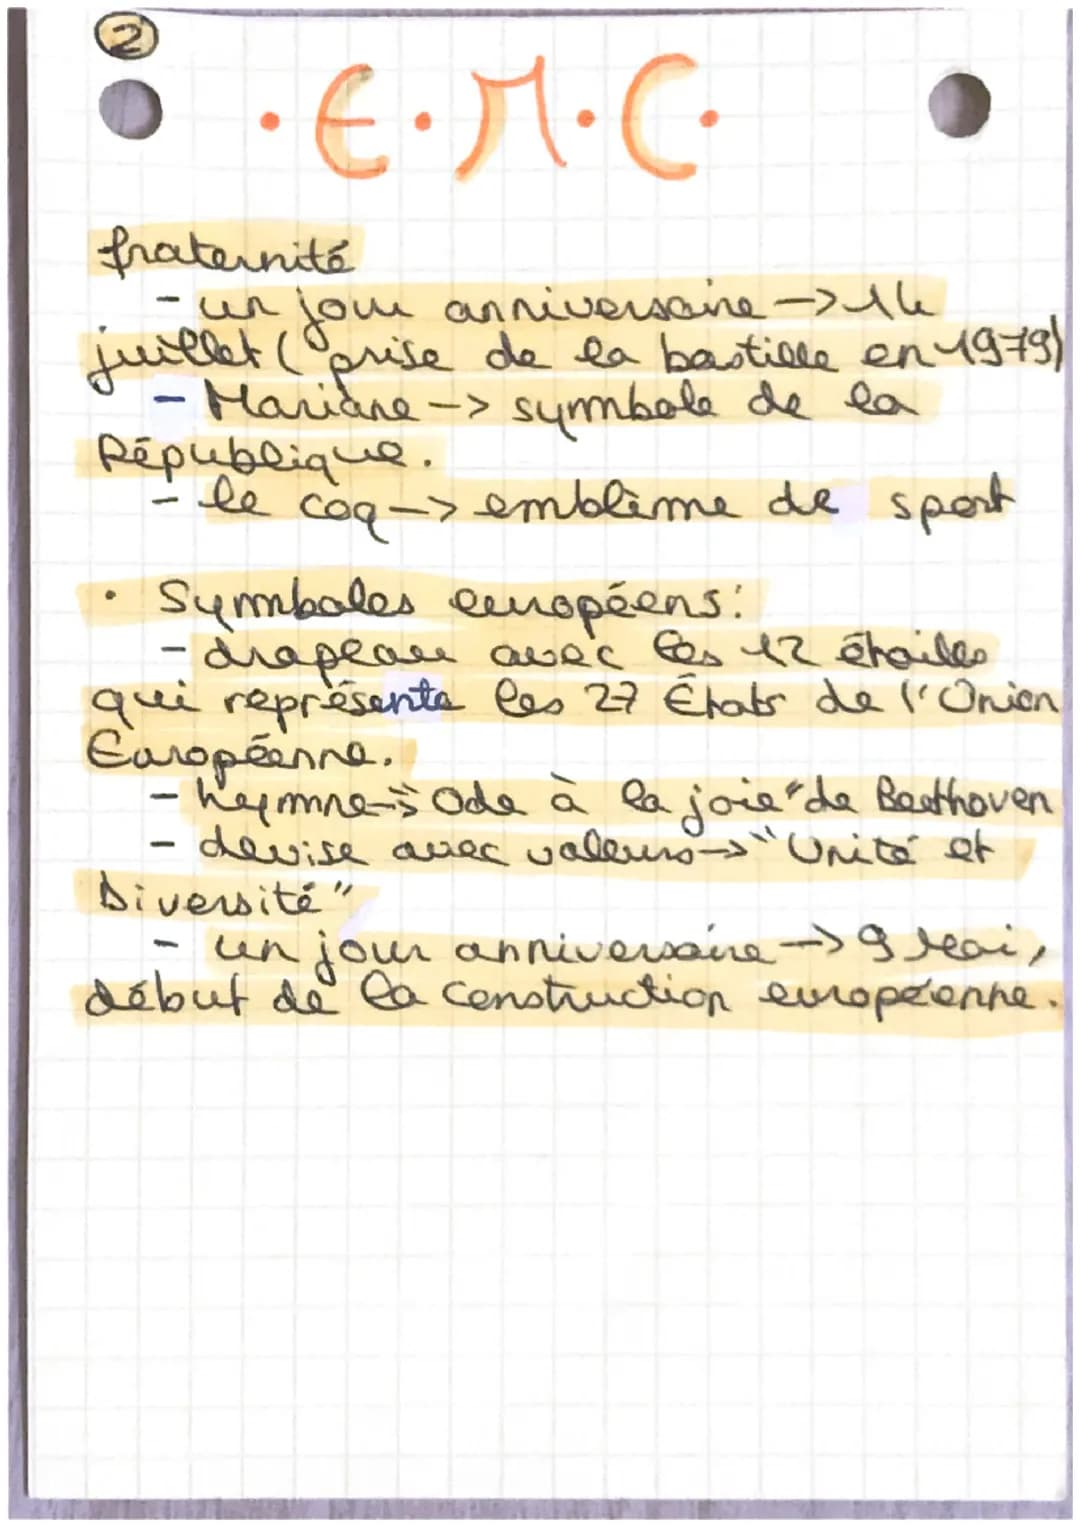 2
. E . M . C .
fraternité
- un jour anniversaire -> 14
juillet ( prise de la bastille en 1979)
- Mariane -> symbole de la
République.
- le coq -> emblème de sport
• Symboles européens:
- drapeau avec les 12 étoiles
qui représente les 27 États de l'Union
Européenne.
- hymne -> "Ode à la joie" de Beethoven
- devise avec valeurs -> "Unité et
Diversité"
- un jour anniversaire -> 9 Mai,
début de la construction européenne.